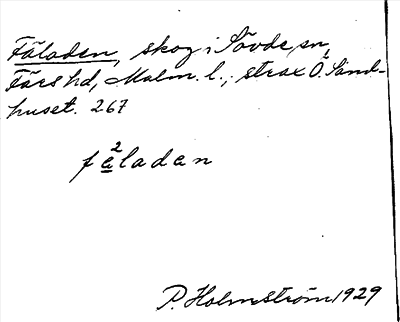 Fäladen, skog i Sövde sn,
Färs hd, Malm. l.; strax Ö. Sand-
huset. 267
fe²laden
P. Holmström 1929